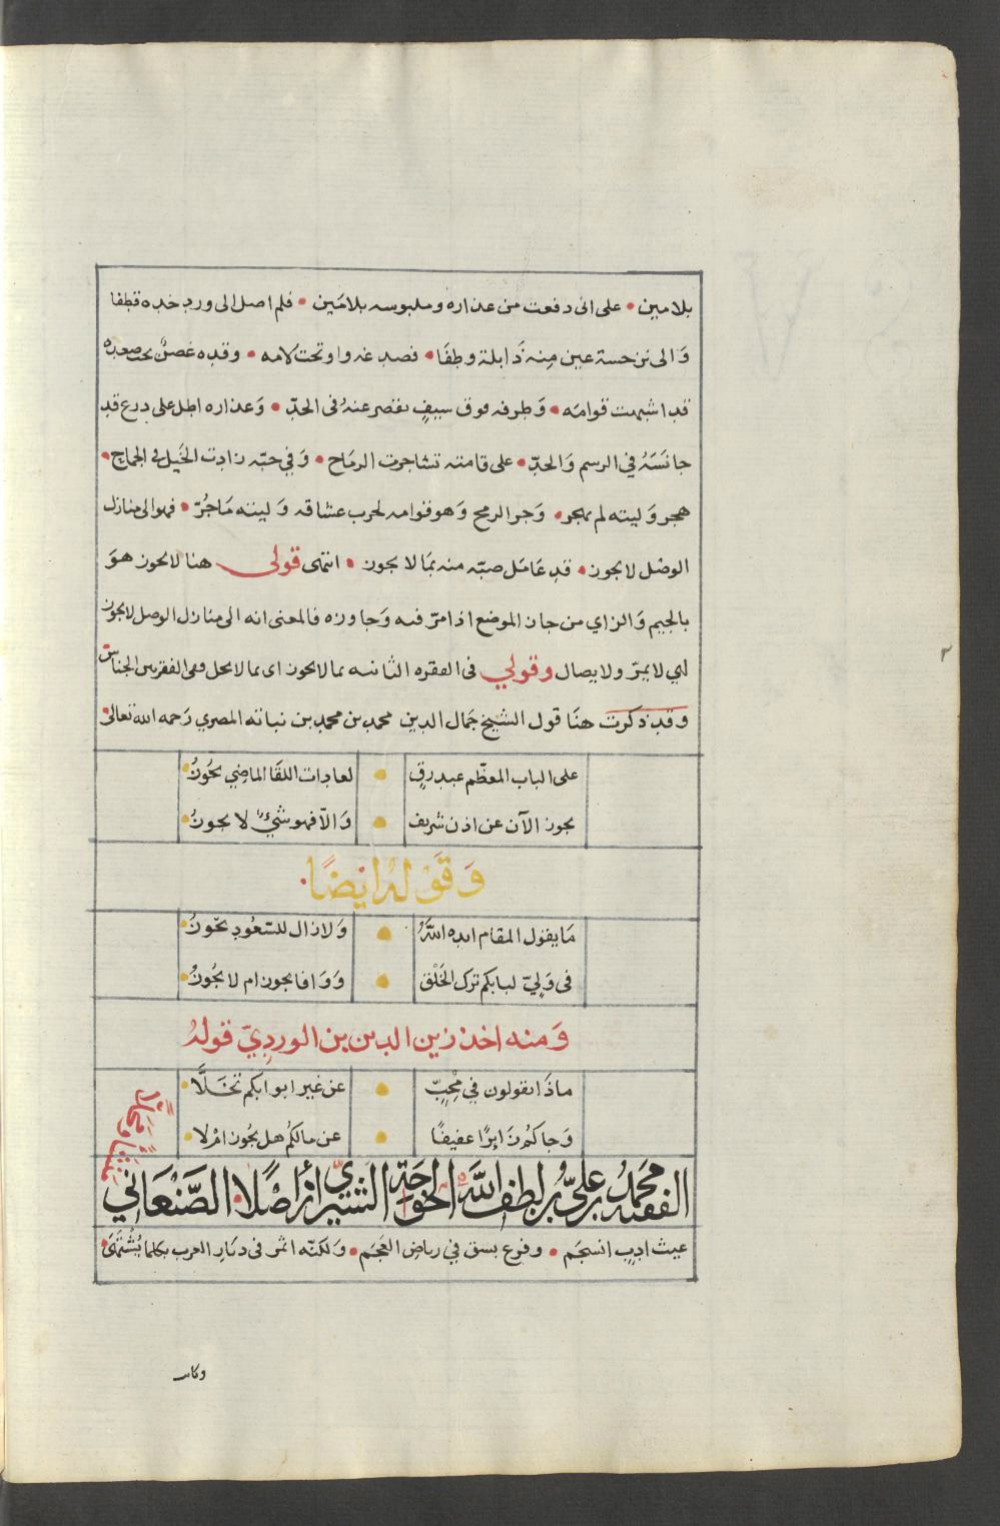 بلامين • على انى دفعت من عذاره وملبوسه بلامين • فلم اصل الى ورد خده قطفا
وَالى نرجسة عين مِنه ذَابلة وطفَا • فصدغه واو تحت لامه • وقده غصنٌ
قد اشبهت قوامَه • وَطرفه فوق سيفٍ يقصر عنهُ فى الحدّ • وَعذاره اطل على درع قد
جانَسَهُ في الرسم وَالحدِّ • على قامته تشاجرت الرمَاح • وَفي حبّه زادت الخَيل في الجماح •
هجر وَليته لم يهجر • وَجر الرمح وَهو قوامه لحرب عشاقه وَليته مَا جُرّ • فهو الى منازل
الوصل لا يجوز • قد عَامَل صبّه منه بمَا لا يجوز • انتهى قولى هنا لا يجوز هوَ
بالجيم وَالزاي من جاز الموضع اذا مرّ فيه وَجاوزه فالمعنى انه الى منازل الوصل لا يجوز
اي لا يمرّ ولا يصال وقولي فى الفقره الثانيه بما لا يجوز اى بما لا يحل ففى الفقرتين الجناس
وقد ذكرت هنَا قول الشيخ جَمال الدين محمد بن محمد بن نباته المصري رَحمه الله تعالى
على الباب المعظّم عبد رقٍ • لعادات اللقَا الماضِي يجُوزُ
يجوز الآن عن اذن شريف • وَالّا فهو شيْءٌ لا يجوزُ
وَقَوْلهُ ايضًا
مَا يقول المقام ايده اللّهُ • وَلا زال للسّعُود يَحُوزُ
فى وَلِيّ لبابكم ترك الخَلْق • وَوَافا يجوز ام لا يجُوزُ
وَمنه اخذ زين الدين بن الوردِيّ قولهُ
ماذَا تقولون في مُحِبّ • عن غير ابوابكم تخَلَّا
وَجاكمُ زَايرًا عفيفًا • عن مالكُم هل يجُوز امْ لا
الفقيه محمد بن علي بن لطف الله الخواجة الشيرازي اصلًا الصَّنْعَاني
منشأ ومولدًا
غيث ادبٍ انسجَم • وفرع بسق في رياض العَجَم • وَلكنّه اثمر فى ديَار العرب بكلما يُشْتَهَى
وكان